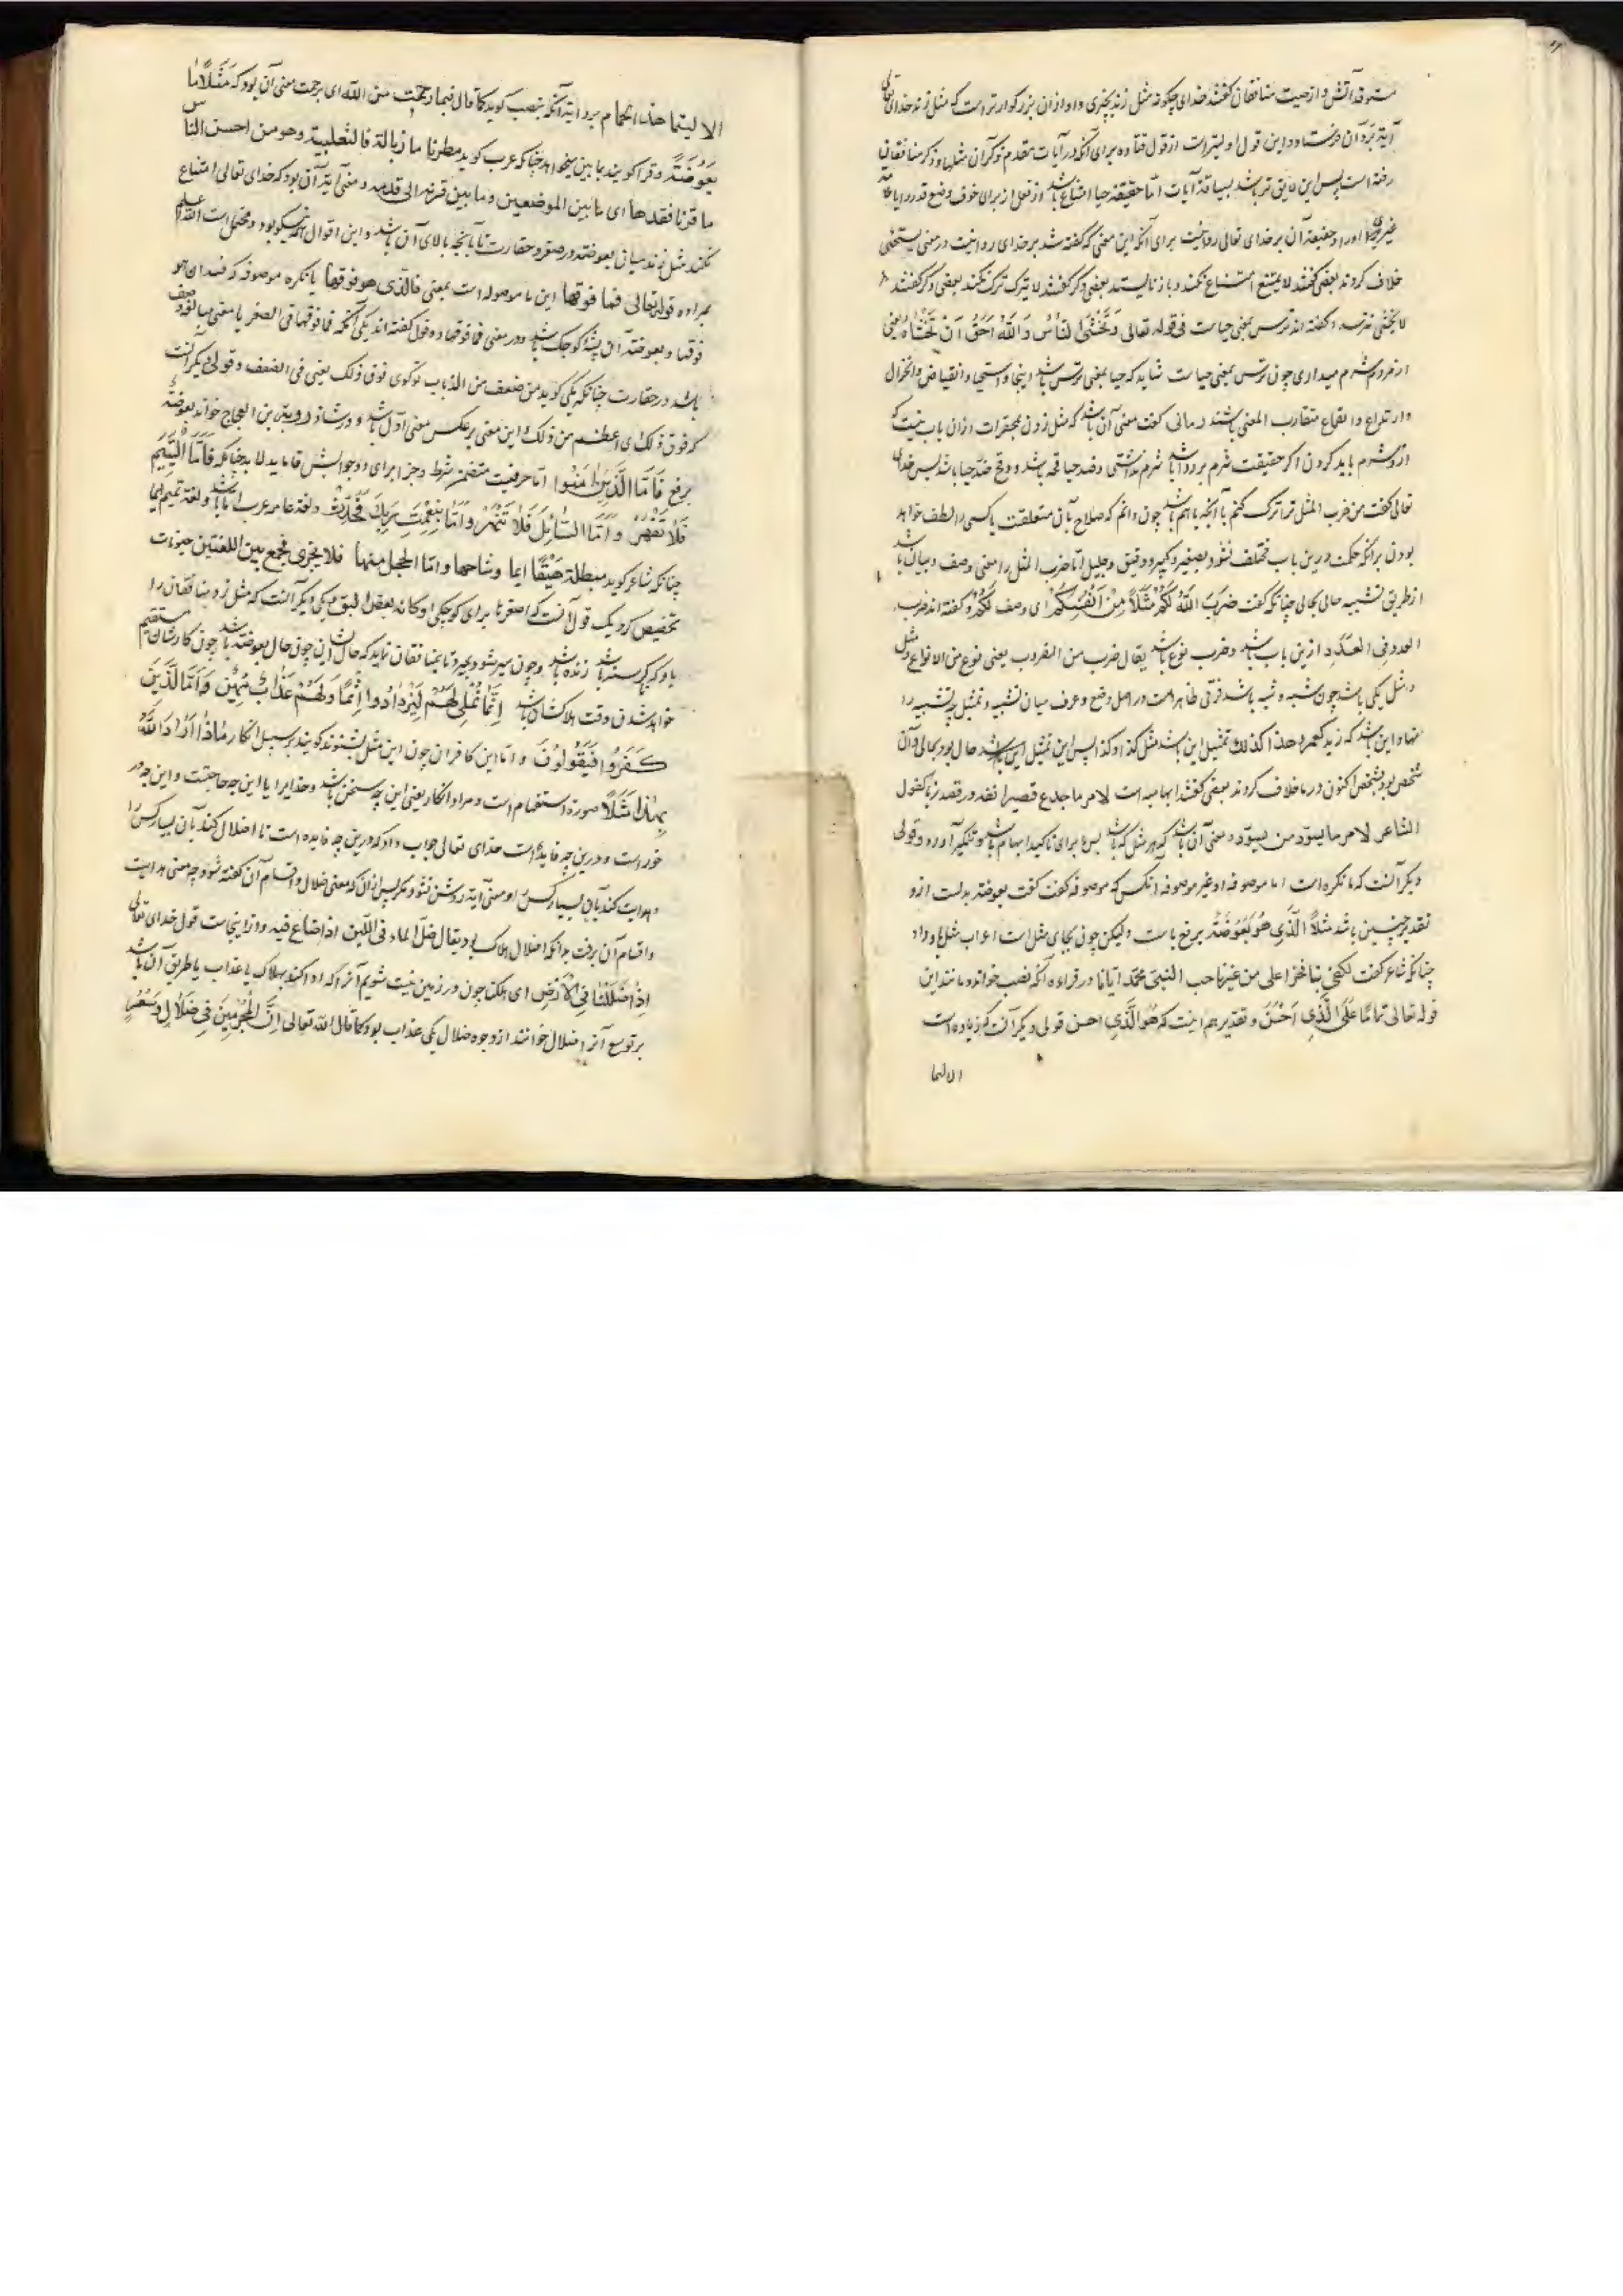 ستوقد آتش و از حیث منافقان گفتند خدای چگونه مثل زند بچیزی و او ازان بزرگوارتر است که مثل زند خدای تعالی
آیة برد آن فرستاد و این قول اولیتر است از قول قتاده برای آنکه در آیات مقدم ذکر آن مثلها و ذکر منافقان
رفته است پس این لایق تر باشد بسیاقة آیات اما حقیقة حیا امتناع باشد از فعل از برای خوف وضع قدر
غیری او را و حقیقة آن بر خدای تعالی روا نیست برای آنکه این معنی که گفته شد بر خدای روا نیست در معنی یستحیی
خلاف کردند بعضی گفتند لا یمتنع امتناع نکند و باز نایستد بعضی دگر گفتند لا یترک ترک نکند بعضی دگر گفتند
لا یخشی نترسد و گفته اند ترس بمعنی حیاست فی قوله تعالی وَتَخْشَی النَّاسَ وَاللّٰهُ اَحَقُّ اَنْ تَخْشَاهُ یعنی
از مردم شرم میداری چون ترس بمعنی حیاست شاید که حیا بمعنی ترس باشد اینجا و استحیا و انقباض و انخزال
و ارتداع و انقماع متقارب المعنی باشند رمانی گفت معنی آن باشد که مثل زدن بمحقرات ازان باب نیست که
ازو شرم باید کردن اگر حقیقت شرم برو روا باشد شرم نداشتی و ضد حیا قحه باشد و وقح ضد حیا باشد پس خدای
تعالی گفت من ضرب المثل ترا ترک نکنم با آنچه باهم باشد چون دانم که صلاح بآن متعلقست یا کسی را لطف خواهد
بودن برانکه حکمت درین باب مختلف نشود بصغیر و کبیر و دقیق و جلیل اما ضرب المثل را معنی وصف و بیان باشد
از طریق تشبیه حالی بحالی چنانکه گفت ضَرَبَ اللّٰهُ لَکُمْ مَثَلًا مِنْ اَنْفُسِکُمْ ای وصف لکم و گفته اند ضرب
العدو فی العدد ازین باب باشد و ضرب نوع باشد یقال ضرب من الضروب یعنی نوع من الانواع و مثل
و مثل یکی باشد چون شبه و شبه باشد فرقی ظاهر است در اصل وضع و عرف میان تشبیه و تمثیل چه تشبیه را
نهاد این باشد که زید کعمرو هذا کذلک تمثیل این باشد مثل کذا و کذا پس این تمثیل این باشد حال بود بحالی و آن
شخص بود بشخص اکنون در ما خلاف کردند بعضی گفتند ابهامیه است لامر ما جدع قصیر انفه در قصه زبا کقول
الشاعر لامر ما یسود من یسود و معنی آن باشد که هر مثل که باشد پس ما برای تاکید ابهام باشد و تنکیر آورد و قولی
دیگر آنست که ما نکره است اما موصوفه او غیر موصوفه آنکس که موصوفه گفت گفت بعوضة بدلست ازو
تقدیر چنین باشد مثلاً الَّذِی هُوَ بَعُوضَةٌ برفع باست و لیکن چون بجای مثل است اعراب مثل باو داد
چنانکه شاعر گفت لکفی بنا فخرا علی من غیرنا حب النبی محمد ایانا در قراءة آنکه نصب خواند و مانند این
قوله تعالی تَمَامًا عَلَی الَّذِی اَحْسَنُ و تقدیر هم اینست که هُوَ الَّذِی احسن قولی دیگر آنست که ما زیاده است
الا لیتما
الا لیتما هذا الحمام بروایة آنکه بنصب گوید کما قال فبما رحمت من اللّٰه ای برحمت معنی آن بود که مَثَلًا مَا
بَعُوضَةً و فرا گویند بما بین میخواهد چنانکه عرب گوید مطرنا ما زبالة فالثعلبیة و هو من احسن الناس
ما قرنا فقدما ای ما بین الموضعین و ما بین قرنه الی قدمه و معنی آیة آن بود که خدای تعالی امتناع
نکند مثل زند میان بعوضه در صغر و حقارت تا بآنچه بالای آن باشد و این اقوال همه نیکو بود و محتمل است اللّٰه اعلم
بمراده قوله تعالی فما فوقها این ما موصوله است بمعنی فالذی هو فوقها یا نکره موصوفه که فشیء هو
فوقها و بعوضة آن پشه کوچک باشد و در معنی فما فوقها دو قول گفته اند یکی آنکه فما فوقها فی الصغر یا معنی مبالغه وصف
باشد در حقارت چنانکه یکی گوید من ضعف من الذباب تو گوی فوق ذلک یعنی فی الضعف و قولی دیگر آنست
که فوق ذلک ای اعظم من ذلک و این معنی برعکس معنی اول باشد و در شاذ رؤبة بن العجاج خواند بعوضةٌ
برفع فَاَمَّا الَّذِینَ اٰمَنُوا اما حرفیست متضمن شرط و جزا برای دو جوابش فا باید لا بد چنانکه فَاَمَّا الْیَتِیمَ
فَلَا تَقْهَرْ وَ اَمَّا السَّائِلَ فَلَا تَنْهَرْ وَ اَمَّا بِنِعْمَةِ رَبِّکَ فَحَدِّثْ و لغة عامه عرب اما باشد و لغة تمیم ایما
چنانکه شاعر گوید مبتلة هیفا ایما وشاحها و اما الحجل منها فلا یجری فجمع بین اللغتین حیوانات
تخصیص کرد یک قول آنست که اصغر ما برای کوچکی او کانه بعض البق یکی دیگر آنست که مثل زد منافقان را
باو که گرسنه باشد زنده باشد و چون سیر شود بمیرد تا بمنافقان نماید که حال ایشان چون حال بعوضه باشد چون کارشان مستقیم
خواهد شدن وقت هلاکشان باشد اِنَّمَا نُمْلِی لَهُمْ لِیَزْدَادُوا اِثْمًا وَلَهُمْ عَذَابٌ مُهِینٌ وَاَمَّا الَّذِینَ
کَفَرُوا فَیَقُولُونَ و اما این کافران چون این مثل بشنوند گویند بر سبیل انکار مَاذَا اَرَادَ اللّٰهُ
بِهٰذَا مَثَلًا صورة استفهام است و مراد انکار یعنی این چه سخن باشد و خدایرا با این چه حاجتست و این چه در
خور است و درین چه فایده است خدای تعالی جواب داد که درین چه فایده است تا اضلال کند بآن بسیار کس را
و هدایت کند بآن بسیار کس را و معنی آیة روشن نشود مگر پس ازان که معنی ضلال و اقسام آن گفته شود و چه معنی هدایت
و اقسام آن برفت بدانکه اضلال اهلاک بود یقال ضل الماء فی اللبن اذا ضاع فیه و ازاینجاست قول خدای تعالی
اِذَا ضَلَلْنَا فِی الْاَرْضِ ای هلکنا چون در زمین نیست شویم آنرا که او کند بهلاک یا عذاب یا طریق آن باشد
بر توسع آنرا ضلال خوانند از وجوه ضلال یکی عذاب بود کما قال اللّٰه تعالی اِنَّ الْمُجْرِمِینَ فِی ضَلَالٍ وَسُعُرٍ